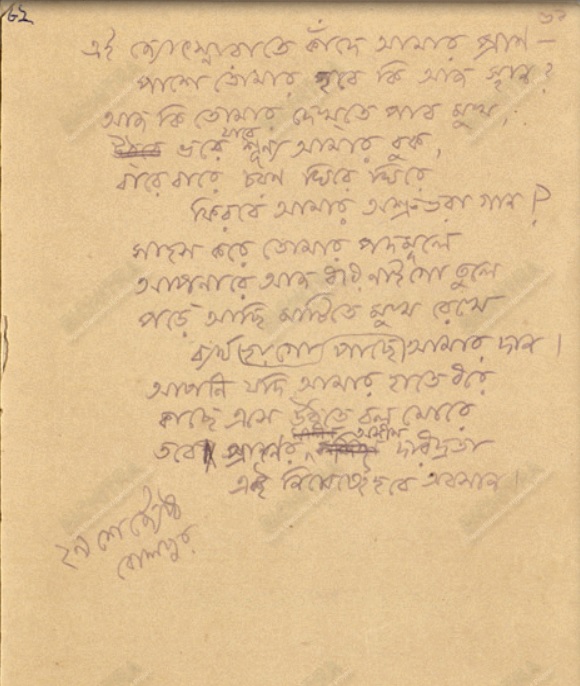 ৬২
এই জ্যোৎস্নারাতে কাঁদে আমার প্রাণ —
পাশে তোমার হবে কি আজ স্থান?
আজ কি তোমার দেখতে পাব মুখ,
ভরে যাবে শূন্য আমার বুক,
বারে বারে চরণ ঘিরে ঘিরে
ফিরবে আমার অশ্রুভরা গান?
সাহস করে তোমার পদমূলে
আপনারে আজ ধরি নাই গো তুলে
পড়ে আছি মাটিতে মুখ রেখে
ব্যর্থ হোগো পাছে আমার দান।
আপনি যদি আমার হাতে ধরে
কাছে এসে উঠতে বল মোরে
তবে প্রাণের অসীম দারিদ্র্যতা
এই নিমেষেই হবে অবসান।
২৯শে জ্যৈষ্ঠ
বোলপুর